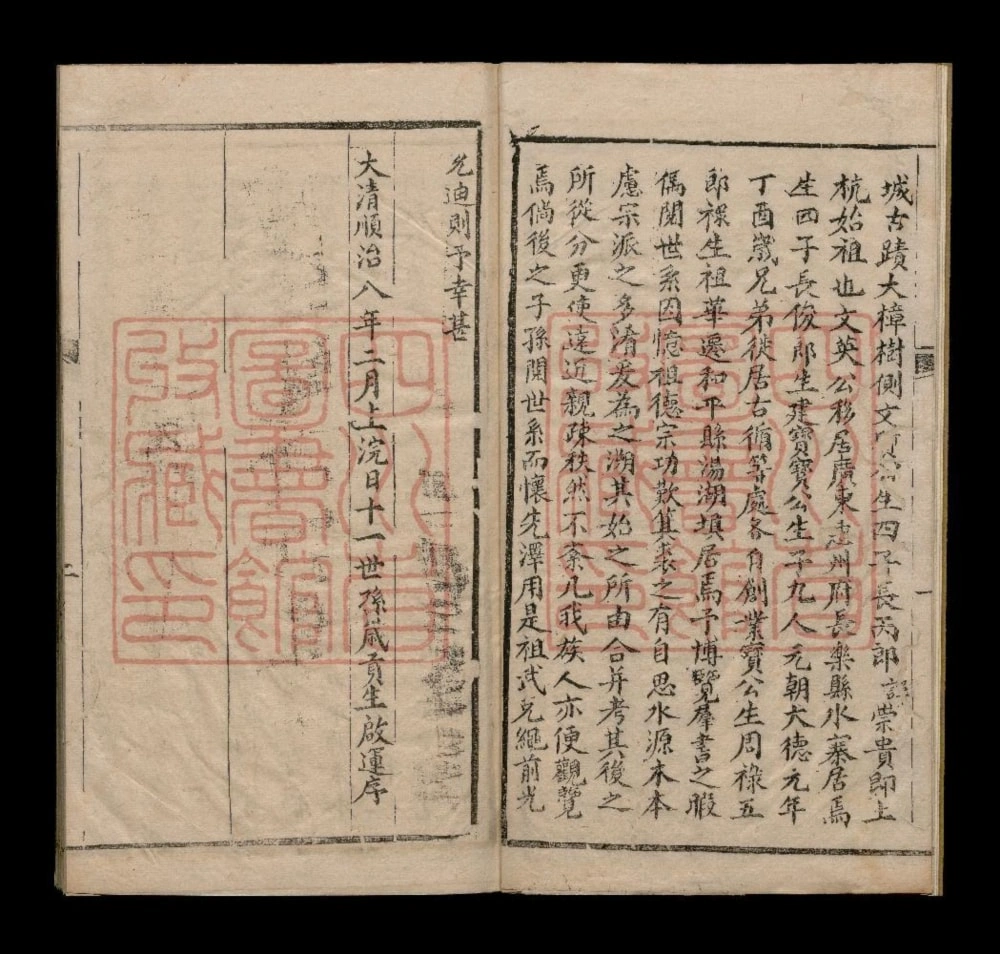 城古蹟大樟樹側文寶公生四子長芮郎諱崇貴即上
杭始祖也文英公移居廣東惠州府長樂縣水寨居焉
生四子長俊郎生建寶寶公生子九人元朝大德元年
丁酉歲兄弟徙居古循等處各自創業寶公生周祿五
郎祿生祖華遷和平縣湯湖塤居焉予博覽羣書之暇
偶閱世系因憶祖德宗功歎其來之有自思水源木本
慮宗派之多淆爰為之溯其始之所由合并考其後之
所從分更使遠近親疎秩然不紊凡我族人亦便觀覽
焉倘後之子孫閱世系而懷先澤用是祖武克繩前光
允迪則予幸甚
大清順治八年二月上浣日十一世孫歲貢生啟運序
四川省圖書館收藏印